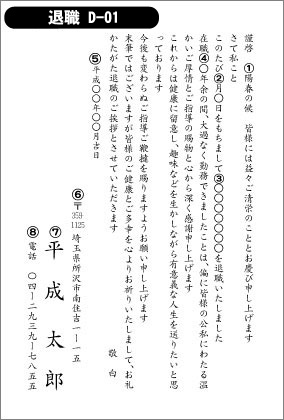 退職 D-01
謹啓 ①陽春の候 皆様には益々ご清栄のこととお慶び申し上げます
さて私こと
このたび②月○日をもちまして③○○○○○○を退職いたしました
在職④○年余の間、大過なく勤務できましたことは、偏に皆様の公私にわたる温
かいご厚情とご指導の賜物と心から深く感謝申し上げます
これからは健康に留意し、趣味などを生かしながら有意義な人生を送りたいと思
っております
今後も変わらぬご指導ご鞭撻を賜りますようお願い申し上げます
末筆ではございますが皆様のご健康とご多幸を心よりお祈りいたしまして、お礼
かたがた退職のご挨拶とさせていただきます
敬 白
⑤平成○○年○○月吉日
⑥〒359-1125 埼玉県所沢市南住吉一-一五
⑦平成太郎
⑧電話 〇四-二九三九-七八五五